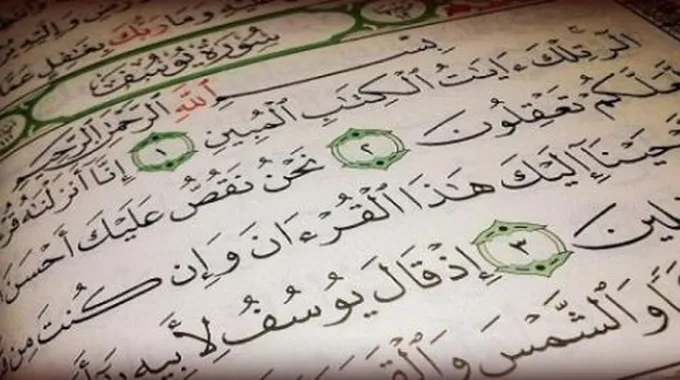 وَمَا رَبُّكَ بِغَٰفِلٍ عَمَّا
سُورَةُ يُوسُفَ
بِسْمِ ٱللَّهِ ٱلرَّحْمَٰنِ ٱلرَّحِيمِ
الٓر تِلْكَ ءَايَٰتُ ٱلْكِتَٰبِ ٱلْمُبِينِ ١ إِنَّآ أَنزَلْنَٰهُ
لَّعَلَّكُمْ تَعْقِلُونَ ٢ نَحْنُ نَقُصُّ عَلَيْكَ أَحْسَنَ
إِلَيْكَ هَٰذَا ٱلْقُرْءَانَ وَإِن كُنتَ مِن
٣ إِذْ قَالَ يُوسُفُ لِأَبِيهِ
وَٱلشَّمْسَ